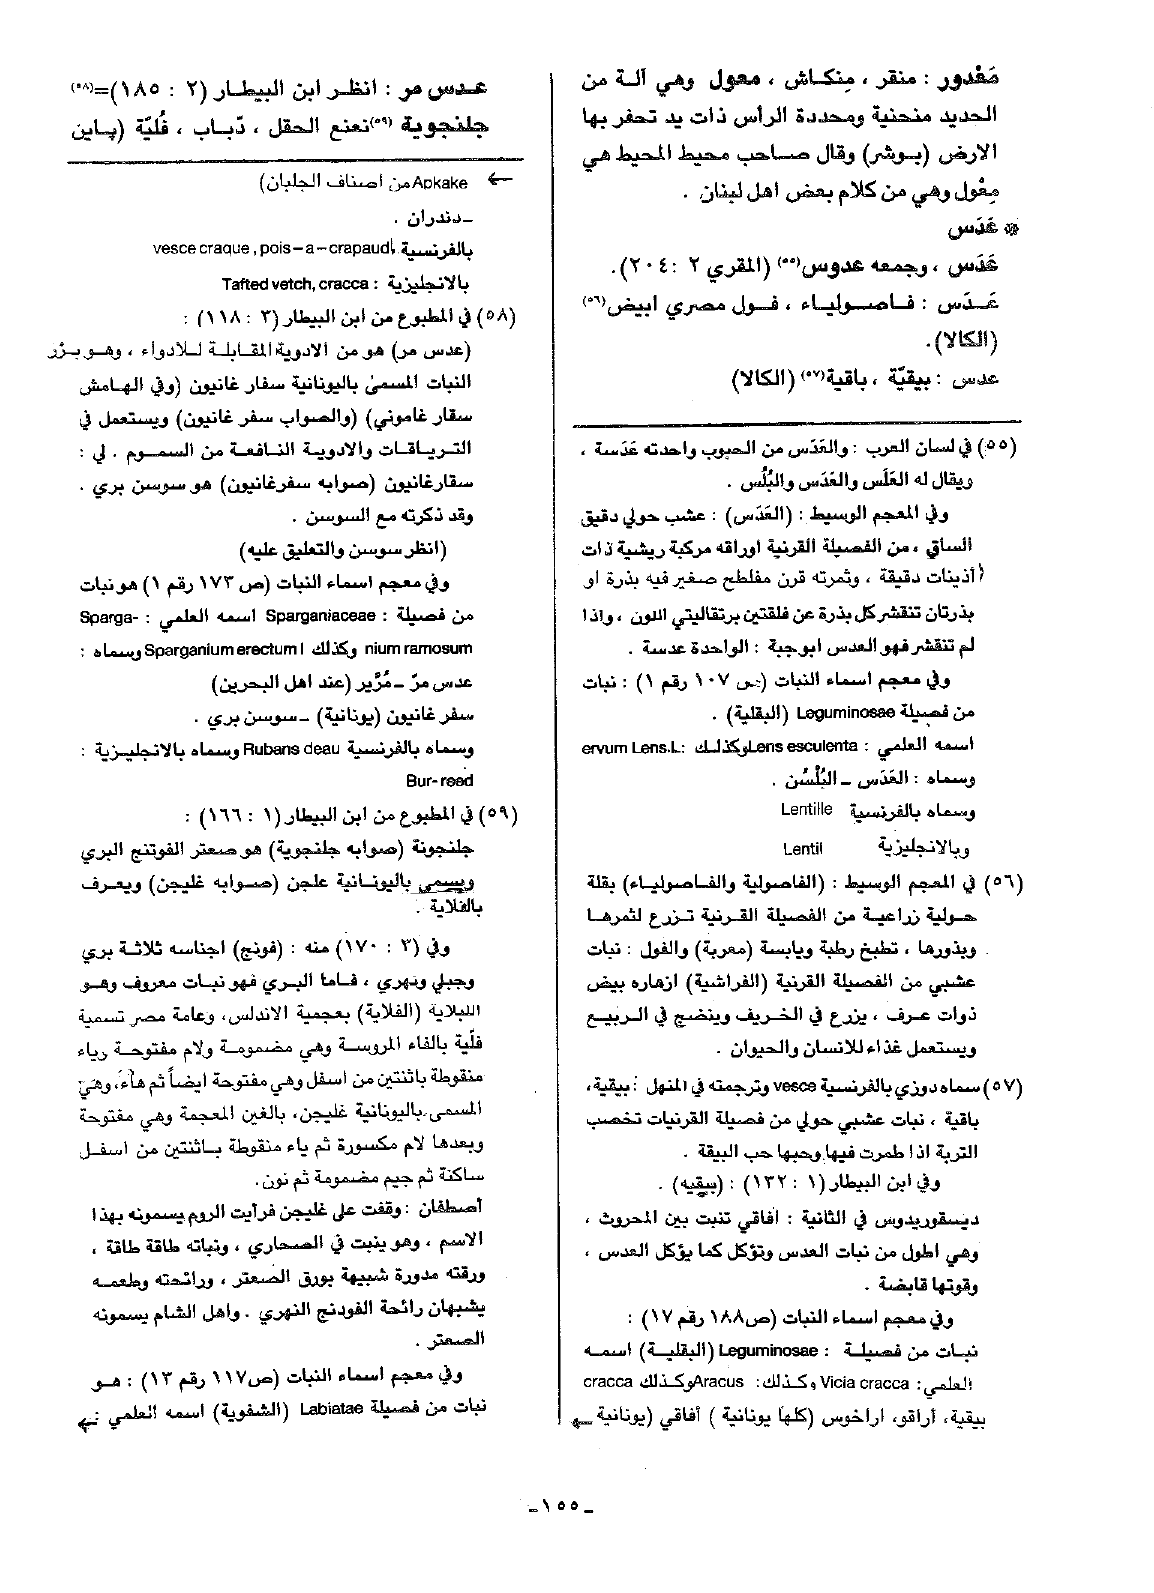 مَعْدور : منقر ، مِنكاش ، معول وهي آلة من
الحديد منحنية ومحددة الرأس ذات يد تحفر بها
الارض (بوشر) وقال صاحب محيط المحيط هي
مِعْول وهي من كلام بعض اهل لبنان .
* عَدَس
عَدَس ، وجمعه عدوس(٥٥) (المقري ٢ :٢٠٤).
عَدَس : فاصولياء ، فول مصري ابيض(٥٦)
(الكالا).
عدس : بيقيّة ، باقية(٥٧) (الكالا)
(٥٥) في لسان العرب : والعَدَس من الحبوب واحدته عَدَسة ،
ويقال له العَلَس والعَدَس والبُلُس .
وفي المعجم الوسيط : (العَدَس) : عشب حولي دقيق
الساق ، من الفصيلة القرنية اوراقه مركبة ريشية ذات
أذينات دقيقة ، وثمرته قرن مفلطح صغير فيه بذرة او
بذرتان تنقشر كل بذرة عن فلقتين برتقاليتي اللون ، واذا
لم تنقشر فهو العدس ابوجبة : الواحدة عدسة .
وفي معجم اسماء النبات (ص ١٠٧ رقم ١) : نبات
من فصيلة Leguminosae (البقلية) .
اسمه العلمي : Lens esculenta وكذلك :ervum Lens.L
وسماه : العَدَس ـ البُلْسُن .
وسماه بالفرنسية Lentille
وبالانجليزية Lentil
(٥٦) في المعجم الوسيط : (الفاصولية والفاصولياء) بقلة
حولية زراعية من الفصيلة القرنية تزرع لثمرها
وبذورها ، تطبخ رطبة ويابسة (معربة) والفول : نبات
عشبي من الفصيلة القرنية (الفراشية) ازهاره بيض
ذوات عرف ، يزرع في الخريف وينضج في الربيع
ويستعمل غذاء للانسان والحيوان .
(٥٧) سماه دوزي بالفرنسية vesce وترجمته في المنهل : بيقية،
باقية ، نبات عشبي حولي من فصيلة القرنيات تخصب
التربة اذا طمرت فيها وحبها حب البيقة .
وفي ابن البيطار (١ : ١٣٢) : (بيقيه) .
ديسقوريدوس في الثانية : افاقي تنبت بين المحروث ،
وهي اطول من نبات العدس وتؤكل كما يؤكل العدس ،
وقوتها قابضة .
وفي معجم اسماء النبات (ص١٨٨ رقم ١٧) :
نبات من فصيلة : Leguminosae (البقلية) اسمه
العلمي: Vicia cracca وكذلك: Aracus وكذلك cracca
بيقية، أراقو، اراخوس (كلها يونانية ) أفاقي (يونانية ←
عدس مر : انظر ابن البيطار (٢ : ١٨٥)=(٥٨)
جلنجوية (٥٩)نعنع الحقل ، دّباب ، فُليّة (پاين
← Apkake من اصناف الجلبان)
ـدندران .
بالفرنسية vesce craque, pois-a-crapaud
بالانجليزية : Tafted vetch, cracca
(٥٨) في المطبوع من ابن البيطار (٣ : ١١٨) :
(عدس مر) هو من الادوية المقابلة للادواء ، وهو بزر
النبات المسمى باليونانية سفار غانيون (وفي الهامش
سقار غاموني) (والصواب سفر غانيون) ويستعمل في
الترياقات والادوية النافعة من السموم . لي :
سقارغانيون (صوابه سفرغانيون) هو سوسن بري .
وقد ذكرته مع السوسن .
(انظر سوسن والتعليق عليه)
وفي معجم اسماء النبات (ص ١٧٣ رقم ١) هو نبات
من فصيلة : Sparganiaceae اسمه العلمي : Sparga-
nium ramosum وكذلك Sparganium erectum l وسماه :
عدس مرّ ـ مُرَّير (عند اهل البحرين)
سفر غانيون (يونانية) ـ سوسن بري .
وسماه بالفرنسية Rubans deau وسماه بالانجليزية :
Bur- reed
(٥٩) في المطبوع من ابن البيطار (١ : ١٦٦) :
جلنجونة (صوابه جلنجوية) هو صعتر الفوتنج البري
ويسمى باليونانية علجن (صوابه غليجن) ويعرف
بالفلاية .
وفي (٣ : ١٧٠) منه : (فونج) اجناسه ثلاثة بري
وجبلي ونهري ، فاما البري فهو نبات معروف وهو
البلاية (الفلاية) بعجمية الاندلس، وعامة مصر تسمية
فلّية بالفاء المروسة وهي مضمومة ولام مفتوحة وياء
منقوطة باثنتين من اسفل وهي مفتوحة ايضاً ثم هاء، وهي
المسمى باليونانية غليجن، بالغين المعجمة وهي مفتوحة
وبعدها لام مكسورة ثم ياء منقوطة باثنتين من اسفل
ساكنة ثم جيم مضمومة ثم نون.
أصطفان : وقفت على غليجن فرأيت الروم يسمونه بهذا
الاسم ، وهو ينبت في الصحاري ، ونباته طاقة طاقة ،
ورقته مدورة شبيهة بورق الصعتر ، ورائحته وطعمه
يشبهان رائحة الفودنج النهري . واهل الشام يسمونه
الصعتر .
وفي معجم اسماء النبات (ص١١٧ رقم ١٣) : هو
نبات من فصيلة Labiatae (الشفوية) اسمه العلمي : ←
ـ ١٥٥ ـ